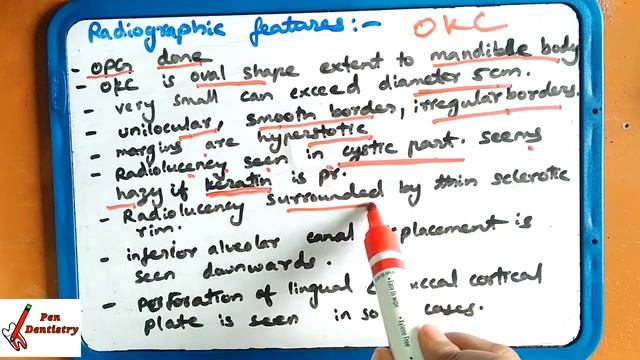 Radiographic features:- OKC
- OPG done
- OKC is oval shape extent to mandible body
- very small can exceed diameter 5cm.
- unilocular, smooth border, irregular borders.
- margins are hyperstotic
- Radiolucency seen in cystic part. seems
hazy if keratin is pr.
- Radiolucency surrounded by thin sclerotic
rim.
- inferior alveolar canal placement is
seen downwards.
- perforation of lingual cortical
plate is seen in cases.
Pen
Dentistry